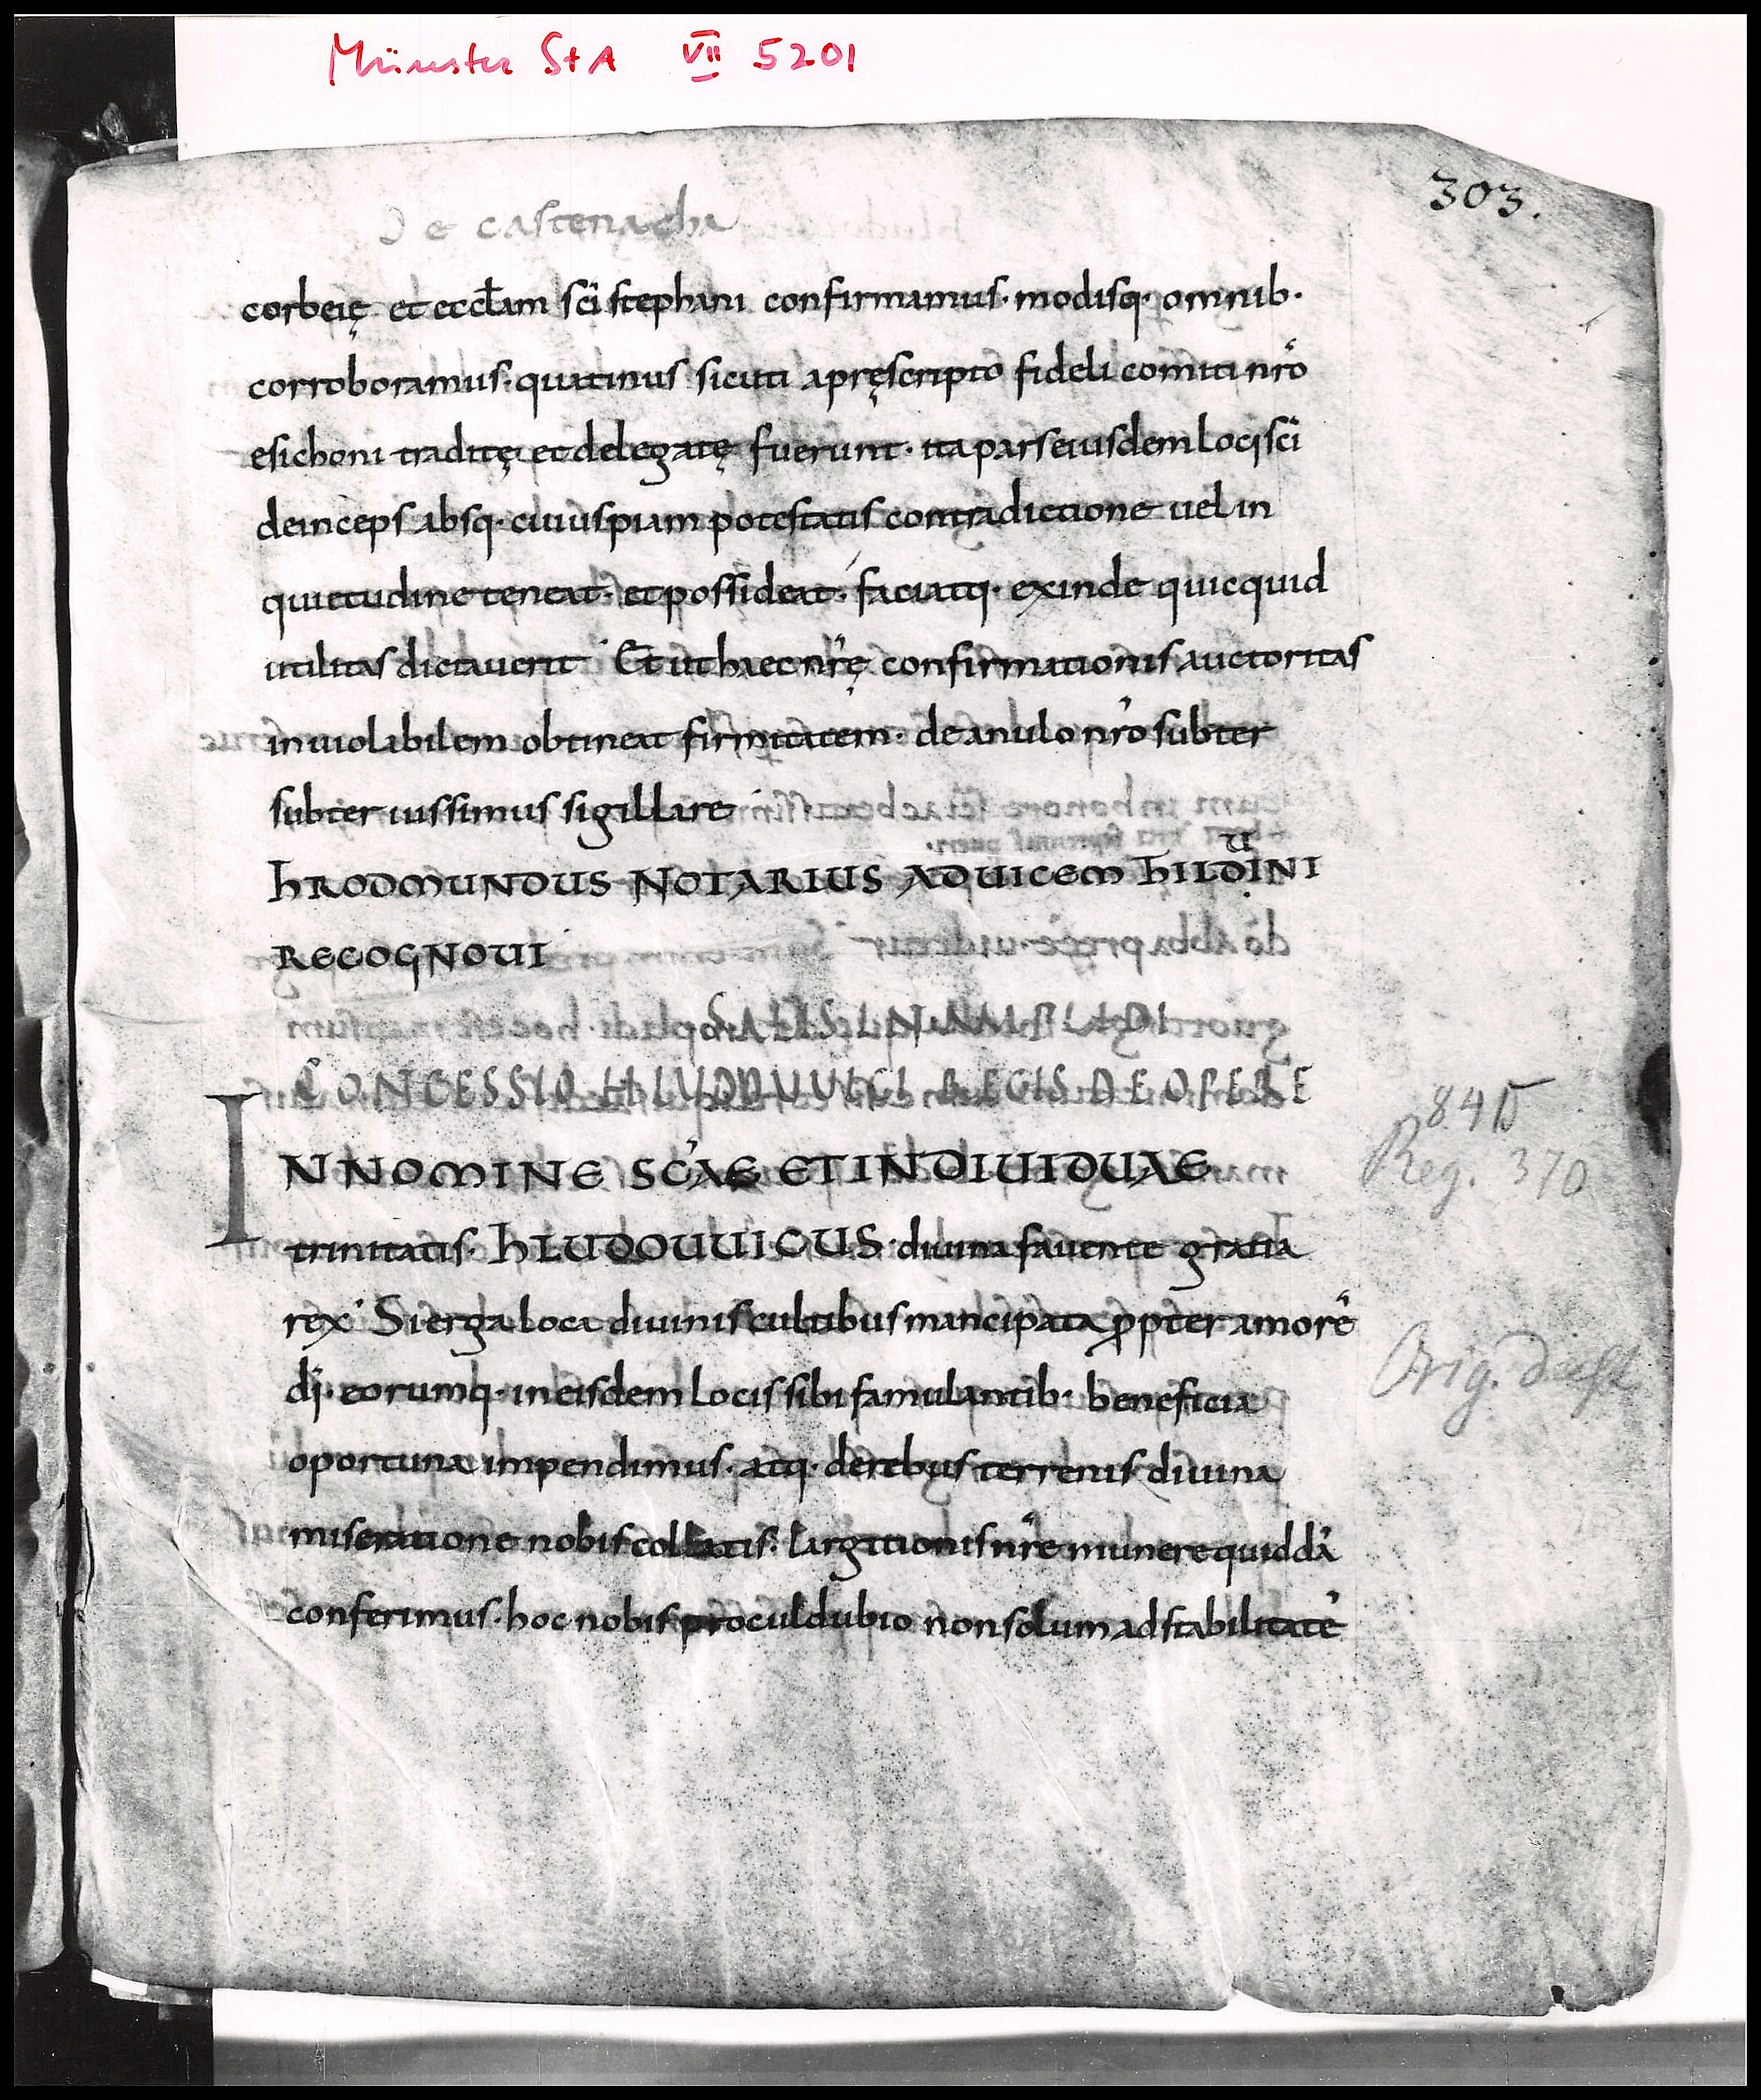 Münster StA VII 5201
303.
De castenacha
corbeię et eccłam sc̄i stephani confirmamus· modisq· omnib·
corroboramus· quatinus sicuti a pręscripto fideli comiti nr̄o
esichoni traditę et delegatę fuerunt· ita pars eiusdem loci sc̄i
deinceps absq· cuiuspiam potestatis contradictione uel in
quietudine teneat· et possideat· faciatq· exinde quicquid
utilitas dictauerit· Et ut haec nr̄ę confirmationis auctoritas
inuiolabilem obtineat firmitatem· de anulo nr̄o subter
subter iussimus sigillare·
hRODMUNDUS NOTARIUS AD UICEM hILDUINI
RECOGNOUI·
CONCESSIO HLUDOUUICI REGIS DE
IN NOMINE SC̄AE ET INDIUIDUAE
trinitatis· hLUDOUUICUS· diuina fauente gratia
rex· Si erga loca diuinis cultibus mancipata ꝓpter amorē
dī· eorumq· in eisdem locis sibi famulantib· beneficia
oportuna impendimus· atq· de rebus terrenis diuina
miseratione nobis collatis· largitionis nr̄e munere quiddā
conferimus· hoc nobis procul dubio non solum ad stabilitatē
Reg. 370
Orig.